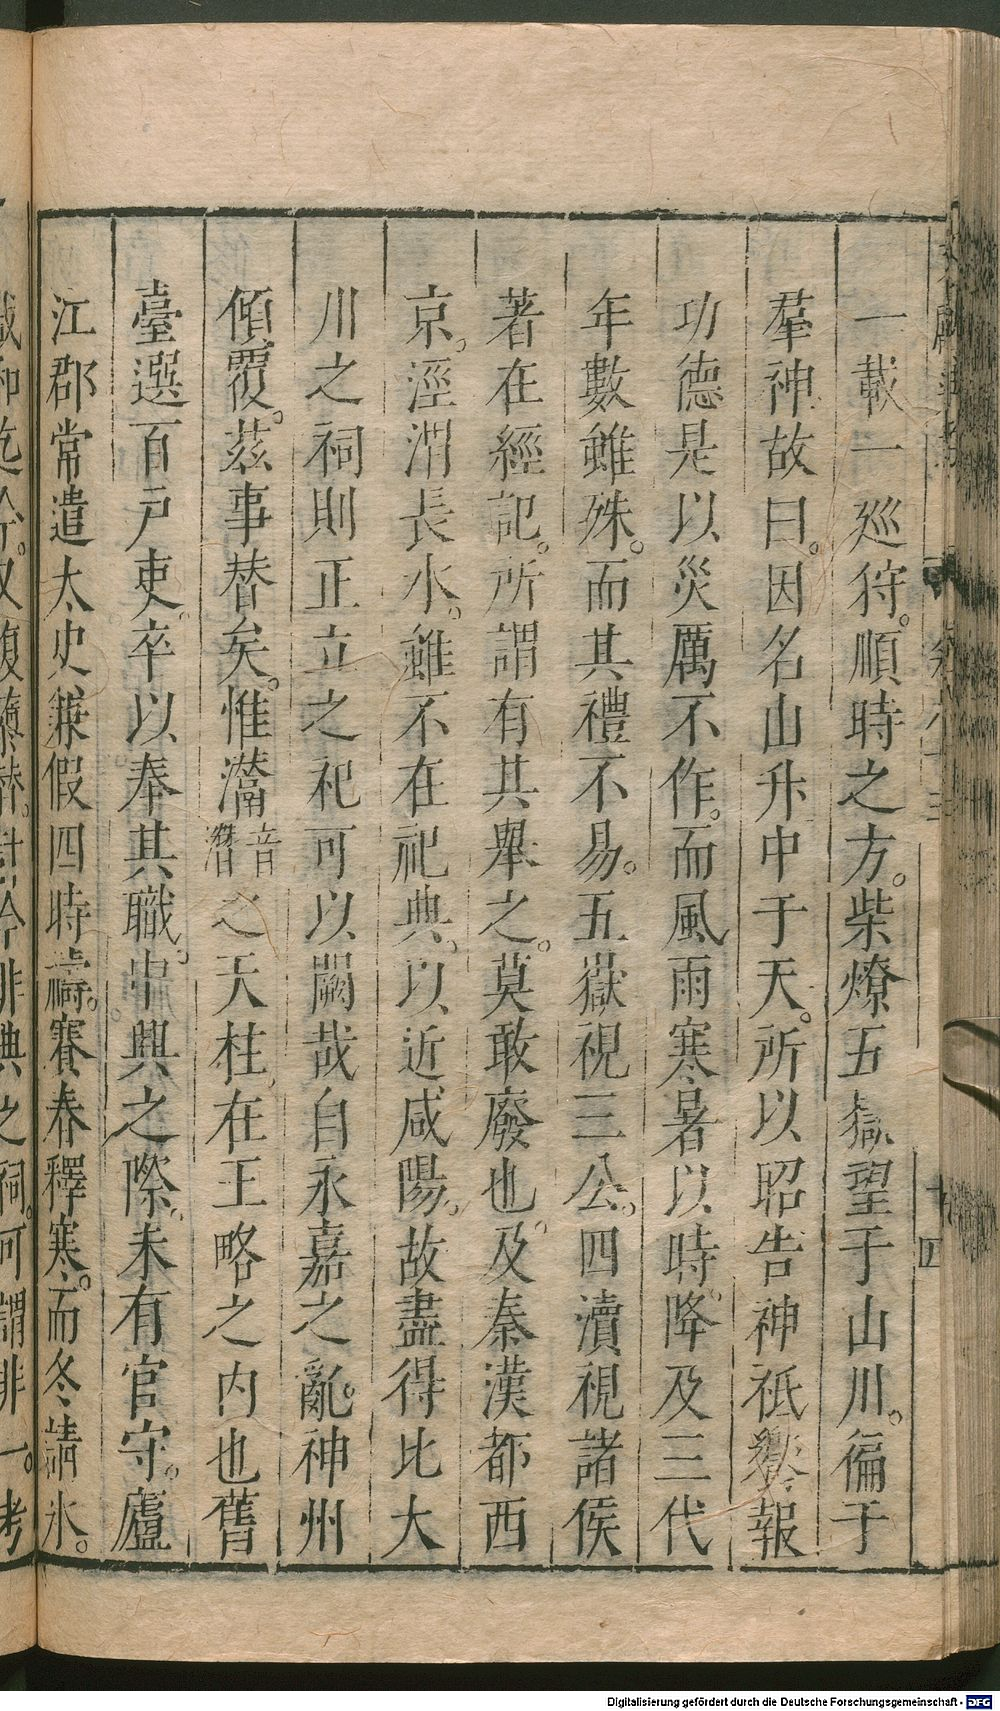 一載一廵狩。順時之方。柴燎五嶽望于山川。徧于
羣神故曰。因名山升中于天。所以昭告神祇饗報
功德是以災厲不作。而風雨寒暑以時。降及三代
年數雖殊。而其禮不易。五嶽視三公。四瀆視諸侯
著在經記。所謂有其舉之。莫敢廢也。及秦漢都西
京。涇渭長水。雖不在祀典。以近咸陽。故盡得比大
川之祠則正立之祀可以闕哉自永嘉之亂。神州
傾覆。茲事替矣。惟灊音潛之天柱在王略之内也舊
臺選百戶吏卒以奉其職。中興之際。未有官守。廬
江郡常遣太史兼假四時禱。賽春釋寒。而冬請氷。
Digitalisierung gefördert durch die Deutsche Forschungsgemeinschaft - DFG